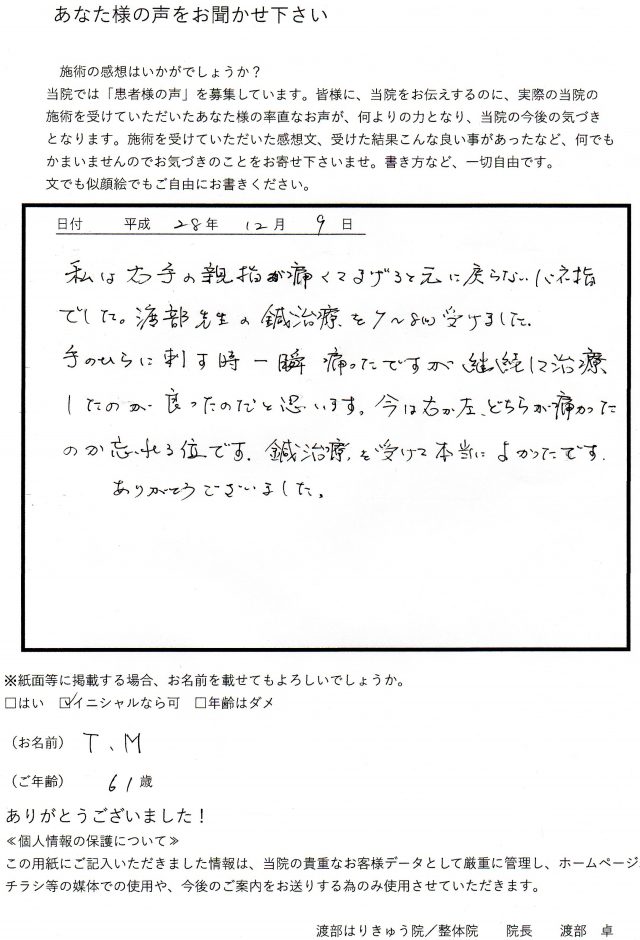 あなた様の声をお聞かせ下さい
施術の感想はいかがでしょうか？
当院では「患者様の声」を募集しています。皆様に、当院をお伝えするのに、実際の当院の
施術を受けていただいたあなた様の率直なお声が、何よりの力となり、当院の今後の気づき
となります。施術を受けていただいた感想文、受けた結果こんな良い事があったなど、何でも
かまいませんのでお気づきのことをお寄せ下さいませ。書き方など、一切自由です。
文でも似顔絵でもご自由にお書きください。
日付　平成 28年 12月 9日
私は右手の親指が痛くてまげると元に戻らないバネ指
でした。渡部先生の鍼治療を7～8回受けました。
手のひらに刺す時一瞬痛ったですが継続して治療
したのが良ったのだと思います。今は右か左、どちらが痛かった
のか忘れる位です。鍼治療を受けて本当によかったです.
ありがとうございました。
※紙面等に掲載する場合、お名前を載せてもよろしいでしょうか。
□はい ☑イニシャルなら可 □年齢はダメ
（お名前） T、M
（ご年齢） 61歳
ありがとうございました！
≪個人情報の保護について≫
この用紙にご記入いただきました情報は、当院の貴重なお客様データとして厳重に管理し、ホームページ、
チラシ等の媒体での使用や、今後のご案内をお送りする為のみ使用させていただきます。
渡部はりきゅう院／整体院　院長　渡部　卓